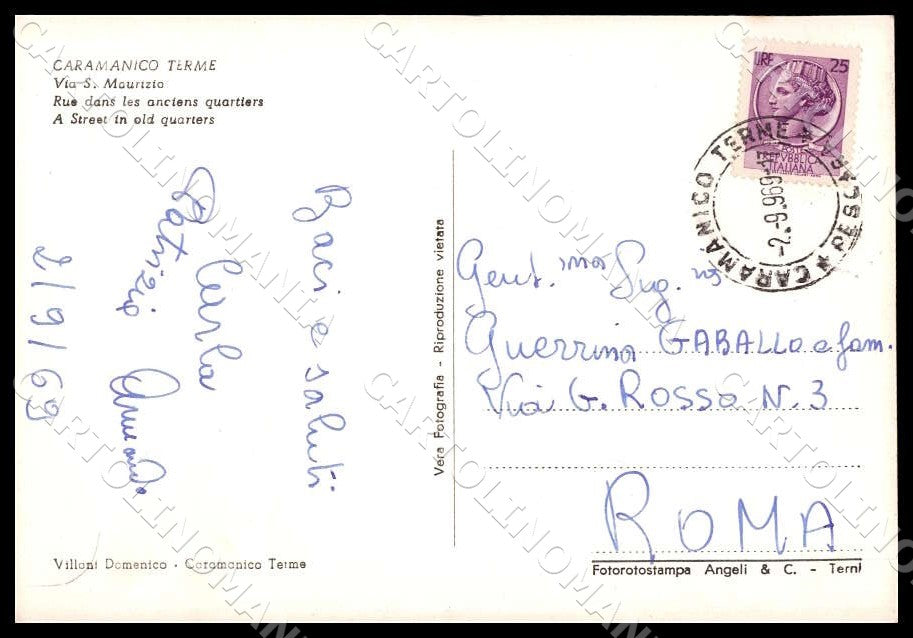 CARAMANICO TERME
Via S. Maurizio
Rue dans les anciens quartiers
A Street in old quarters
Baci e saluti
Carla
Patrizio
Armando
2/9/69
Villani Domenico - Caramanico Terme
Vera Fotografia - Riproduzione vietata
LIRE 25
POSTE
REPVBBLICA
ITALIANA
CARAMANICO TERME * PESCARA *
-2.9.969-17
Gent.ma Sig.na
Guerrina GABALLO e fam.
Via G. ROSSO N. 3
ROMA
Fotorotostampa Angeli & C. - Terni
CARTOLINOMANIA